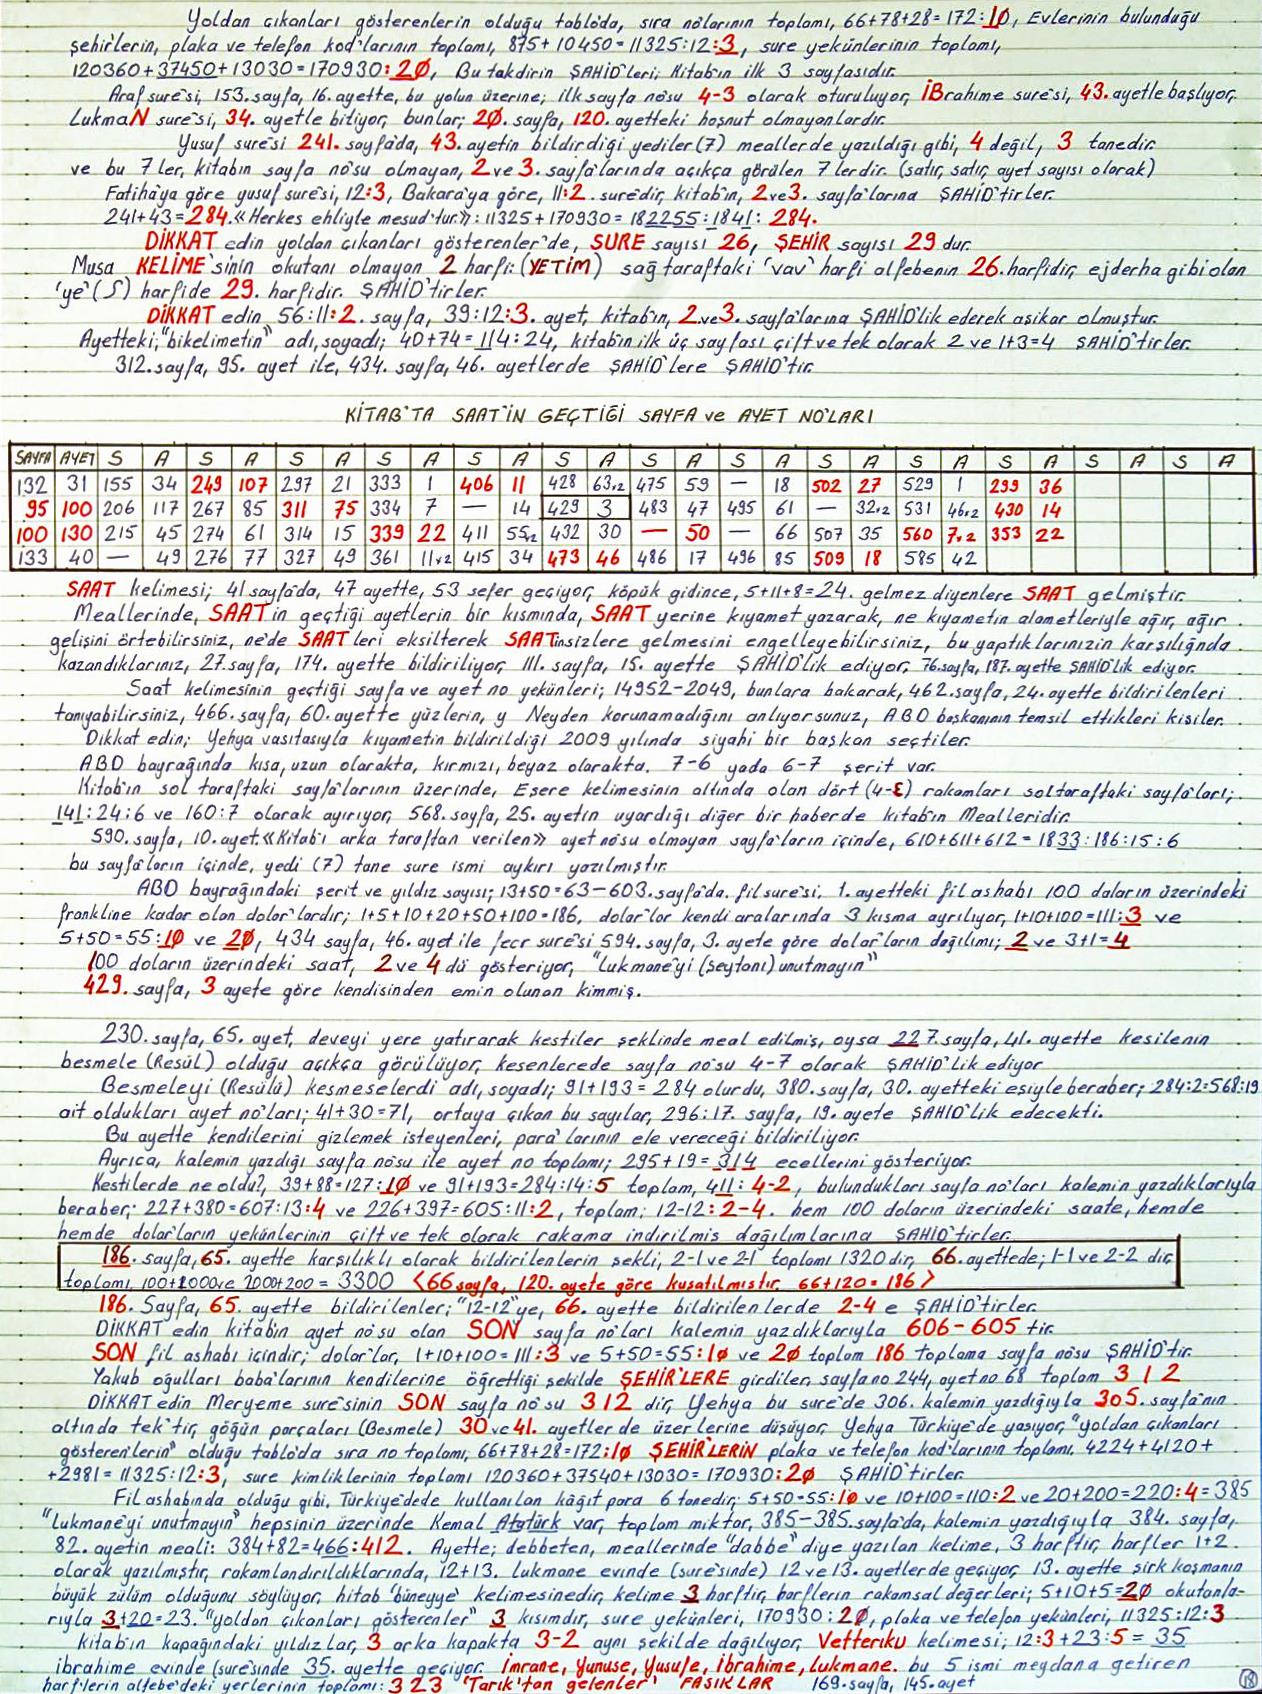 Yoldan çıkanları gösterenlerin olduğu tablo'da, sıra no'larının toplamı, 66+78+28=172:10, Evlerinin bulunduğu
şehir'lerin, plaka ve telefon kod'larının toplamı, 875+10450=11325:12:3, sure yekünlerinin toplamı,
120360+37450+13030=170930:20, Bu takdirin ŞAHİD'leri; Kitab'ın ilk 3 sayfasıdır.
Araf sure'si, 153.sayfa, 16.ayette, bu yolun üzerine; ilk sayfa no'su 4-3 olarak oturuluyor, İBrahime suresi, 43.ayetle başlıyor,
LukmaN sure'si, 34. ayetle bitiyor, bunlar; 20. sayfa, 120.ayetteki hoşnut olmayanlardır.
Yusuf sure'si 241. sayfa'da, 43.ayetin bildirdiği yediler(7) meallerde yazıldığı gibi, 4 değil, 3 tanedir.
ve bu 7 ler, kitab'ın sayfa no'su olmayan, 2 ve 3. sayfa'larında açıkça görülen 7 lerdir. (satır, satır, ayet sayısı olarak)
Fatiha'ya göre yusuf sure'si, 12:3, Bakara'ya göre, 11:2. sure'dir, kitab'ın, 2ve3. sayfa'larına ŞAHİD'tirler.
241+43=284.«Herkes ehliyle mesud'tur.»:11325+170930=182255:1841:284.
DİKKAT edin yoldan çıkanları gösterenler'de, SURE sayısı 26, ŞEHİR sayısı 29 dur.
Musa KELİME'sinin okutanı olmayan 2 harfi:(YETİM) sağ taraftaki 'vav' harfi alfebenin 26.harfidir, ejderha gibi olan
'ye'(S) harfide 29. harfidir. ŞAHİD'tirler.
DİKKAT edin 56:11:2. sayfa, 39:12:3. ayet, kitab'ın, 2.ve3. sayfa'larına ŞAHİD'lik ederek aşikar olmuştur.
Ayetteki; "bikelimetin" adı, soyadı; 40+74=114:24, kitab'ın ilk üç sayfası çift ve tek olarak 2 ve 1+3=4 ŞAHİD'tirler.
312.sayfa, 95. ayet ile, 434. sayfa, 46. ayetlerde ŞAHİD'lere ŞAHİD'tir.
KİTAB'TA SAAT'İN GEÇTİĞİ SAYFA ve AYET NO'LARI
SAYFA AYET S A S A S A S A S A S A S A S A S A S A S A S A S A
132 31 155 34 249 107 297 21 333 1 406 11 428 63.2 475 59 — 18 502 27 529 1 299 36
95 100 206 117 267 85 311 75 334 7 — 14 429 3 483 47 495 61 — 32.2 531 46.2 430 14
100 130 215 45 274 61 314 15 339 22 411 55.2 432 30 — 50 — 66 507 35 560 7.2 353 22
133 40 — 49 276 77 327 49 361 11.2 415 34 473 46 486 17 496 85 509 18 585 42
SAAT kelimesi; 41 sayfa'da, 47 ayette, 53 sefer geçiyor, köpük gidince, 5+11+8=24. gelmez diyenlere SAAT gelmiştir.
Meallerinde, SAAT'in geçtiği ayetlerin bir kısmında, SAAT yerine kıyamet yazarak, ne kıyametin alametleriyle ağır, ağır
gelişini örtebilirsiniz, ne'de SAAT leri eksilterek SAATinsizlere gelmesini engelleyebilirsiniz, bu yaptıklarınızın karşılığında
kazandıklarınız, 27.sayfa, 174. ayette bildiriliyor, 111. sayfa, 15. ayette ŞAHİD'lik ediyor, 76.sayfa, 187. ayette ŞAHİD'lik ediyor.
Saat kelimesinin geçtiği sayfa ve ayet no yekünleri; 14952-2049, bunlara bakarak, 462.sayfa, 24. ayette bildirilenleri
tanıyabilirsiniz, 466.sayfa, 60.ayette yüzlerin, y Neyden korunamadığını anlıyorsunuz, ABD başkanının temsil ettikleri kişiler.
Dikkat edin; Yehya vasıtasıyla kıyametin bildirildiği 2009 yılında siyahi bir başkan seçtiler.
ABD bayrağında kısa, uzun olarakta, kırmızı, beyaz olarakta. 7-6 yada 6-7 şerit var.
Kitab'ın sol taraftaki sayfa'larının üzerinde, Esere kelimesinin altında olan dört (4-Ɛ) rakamları sol taraftaki sayfa'ları;
141:24:6 ve 160:7 olarak ayırıyor, 568.sayfa, 25. ayetin uyardığı diğer bir haberde kitab'ın Mealleridir.
590.sayfa, 10.ayet.«Kitab'ı arka taraftan verilen» ayet no'su olmayan sayfa'ların içinde, 610+611+612=1833:186:15:6
bu sayfa'ların içinde, yedi (7) tane sure ismi aykırı yazılmıştır.
ABD bayrağındaki şerit ve yıldız sayısı; 13+50=63-603.sayfa'da. fil sure'si. 1. ayetteki fil ashabı 100 doların üzerindeki
franklin'e kadar olan dolar'lardır; 1+5+10+20+50+100=186, dolar'lar kendi aralarında 3 kısma ayrılıyor, 1+10+100=111:3 ve
5+50=55:10 ve 20, 434 sayfa, 46. ayet ile fecr sure'si 594.sayfa, 3. ayete göre dolar'ların dağılımı; 2 ve 3+1=4
100 doların üzerindeki saat, 2 ve 4 dü gösteriyor, "lukmane'yi (şeytanı) unutmayın"
429. sayfa, 3 ayete göre kendisinden emin olunan kimmiş.
230.sayfa, 65. ayet, deveyi yere yatırarak kestiler şeklinde meal edilmiş, oysa 227.sayfa, 41. ayette kesilenin
besmele (Resül) olduğu açıkça görülüyor, kesenlerede sayfa no'su 4-7 olarak ŞAHİD'lik ediyor
Besmeleyi (Resülü) kesmeselerdi adı, soyadı; 91+193=284 olurdu, 380.sayfa, 30. ayetteki eşiyle beraber; 284:2=568:19
ait oldukları ayet no'ları; 41+30=71, ortaya çıkan bu sayılar, 296:17. sayfa, 19. ayete ŞAHİD'lik edecekti.
Bu ayette kendilerini gizlemek isteyenleri, para'larının ele vereceği bildiriliyor.
Ayrıca, kalemin yazdığı sayfa no'su ile ayet no toplamı; 295+19=314 ecellerini gösteriyor.
Kestilerde ne oldu?, 39+88=127:10 ve 91+193=284:14:5 toplam, 411:4-2, bulundukları sayfa no'ları kalemin yazdıklarıyla
beraber; 227+380=607:13:4 ve 226+397=605:11:2, toplam; 12-12:2-4. hem 100 doların üzerindeki saate, hemde
hemde dolar'ların yekünlerinin çift ve tek olarak rakama indirilmiş dağılımlarına ŞAHİD'tirler.
186. sayfa, 65. ayette karşılıklı olarak bildirilenlerin şekli, 2-1 ve 2-1 toplamı 1320 dir, 66.ayettede; 1-1 ve 2-2 dir,
toplamı, 100+1000ve 2000+200=3300 <66 sayfa, 120. ayete göre kuşatılmıştır. 66+120=186>
186. Sayfa, 65. ayette bildirilenler; "12-12"ye, 66. ayette bildirilenlerde 2-4 e ŞAHİD'tirler.
DİKKAT edin kitab'ın ayet no'su olan SON sayfa no'ları kalemin yazdıklarıyla 606-605 tir.
SON fil ashabı içindir; dolar'lar, 1+10+100=111:3 ve 5+50=55:10 ve 20 toplam 186 toplama sayfa no'su ŞAHİD'tir.
Yakub oğulları baba'larının kendilerine öğrettiği şekilde ŞEHİR'LERE girdiler, sayfa no 244, ayet no 68 toplam 312
DİKKAT edin Meryeme sure'sinin SON sayfa no'su 312 dir, Yehya bu sure'de 306. kalemin yazdığıyla 305. sayfa'nın
altında tek'tir, göğün parçaları (Besmele) 30 ve 41. ayetler de üzerlerine düşüyor, Yehya Türkiye'de yaşıyor, "yoldan çıkanları
gösteren'lerin" olduğu tablo'da sıra no toplamı, 66+78+28=172:10 ŞEHİR'LERİN plaka ve telefon kod'larının toplamı, 4224+4120+
+2981=11325:12:3, sure kimliklerinin toplamı 120360+37540+13030=170930:20 ŞAHİD'tirler.
Fil ashabında olduğu gibi, Türkiye'dede kullanılan kâğıt para 6 tanedir; 5+50=55:10 ve 10+100=110:2 ve 20+200=220:4=385
"Lukmane'yi unutmayın" hepsinin üzerinde Kemal Atatürk var, toplam miktar, 385-385.sayfa'da, kalemin yazdığıyla 384. sayfa,
82. ayetin meali: 384+82=466:412. Ayette; debbeten, meallerinde "dabbe" diye yazılan kelime, 3 harftir, harfler 1+2
olarak yazılmıştır, rakamlandırıldıklarında, 12+13. lukmane evinde (sure'sinde) 12 ve 13. ayetlerde geçiyor, 13. ayette şirk koşmanın
büyük zülüm olduğunu söylüyor, hitab 'büneyye' kelimesinedir, kelime 3 harftir, harflerin rakamsal değerleri; 5+10+5=20 okutanla-
rıyla 3+20=23. "yoldan çıkanları gösterenler" 3 kısımdır, sure yekünleri, 170930:20, plaka ve telefon yekünleri, 11325:12:3
kitab'ın kapağındaki yıldızlar, 3 arka kapakta 3-2 aynı şekilde dağılıyor, Vetteriku kelimesi; 12:3+23:5=35
ibrahime evinde (sure'sinde 35. ayette geçiyor. İmrane, Yunuse, Yusufe, İbrahime, Lukmane. bu 5 ismi meydana getiren
harf'lerin alfebe'deki yerlerinin toplamı: 323 'Tarık'tan gelenler' FASIKLAR 169.sayfa, 145.ayet
18